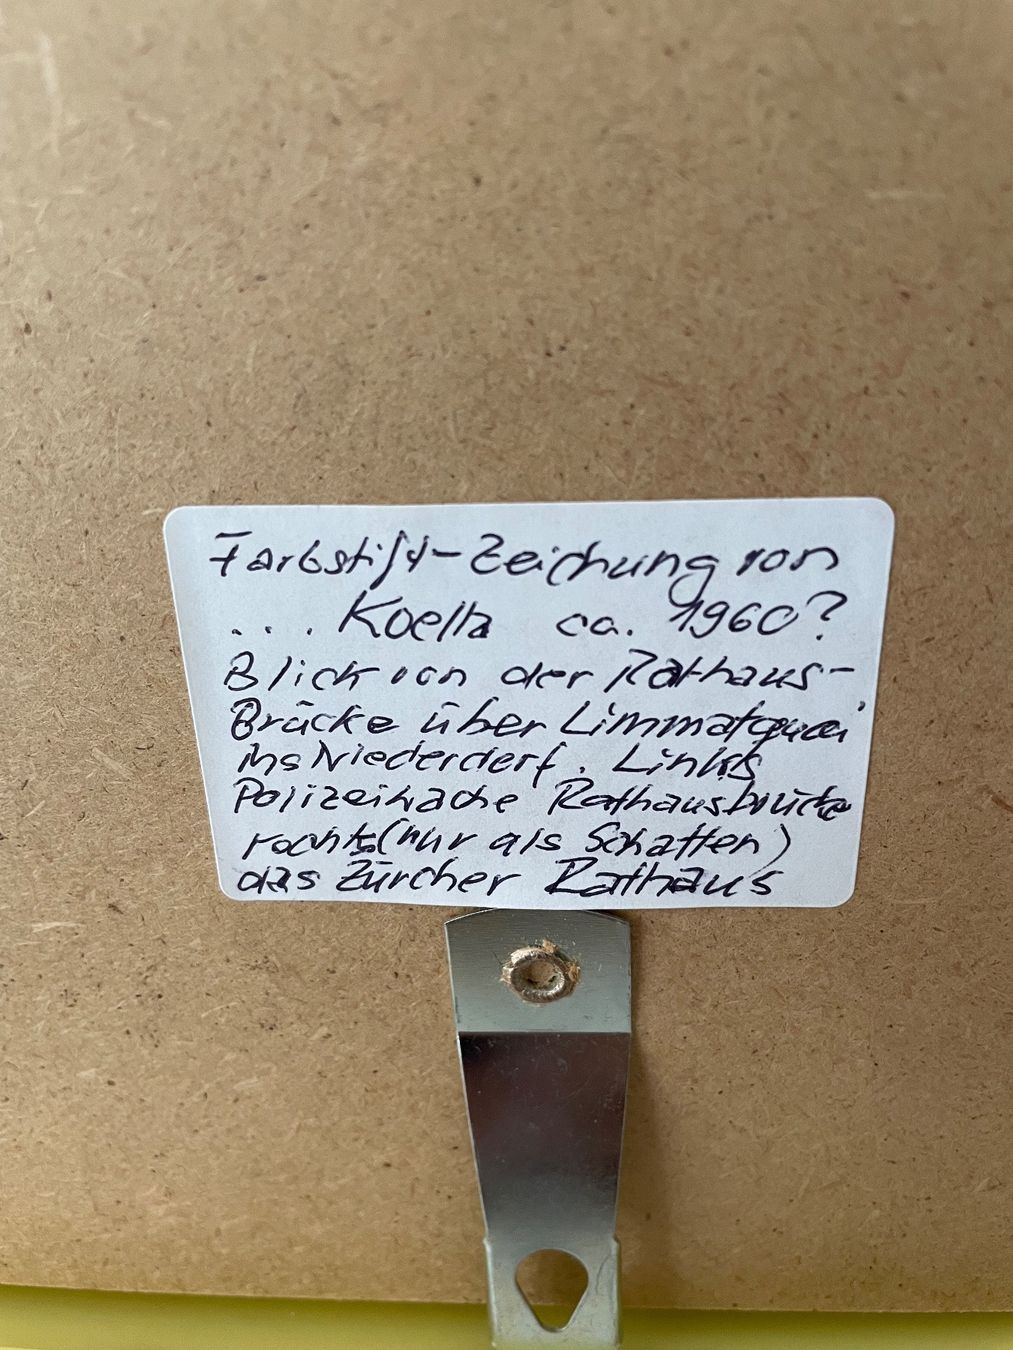 Farbstift-Zeichung von
... Koella ca. 1960?
Blick von der Rathaus-
Brücke über Limmatquai
ins Niederdorf. Links
Polizeiwache Rathausbrücke
rechts (nur als Schatten)
das Zürcher Rathaus